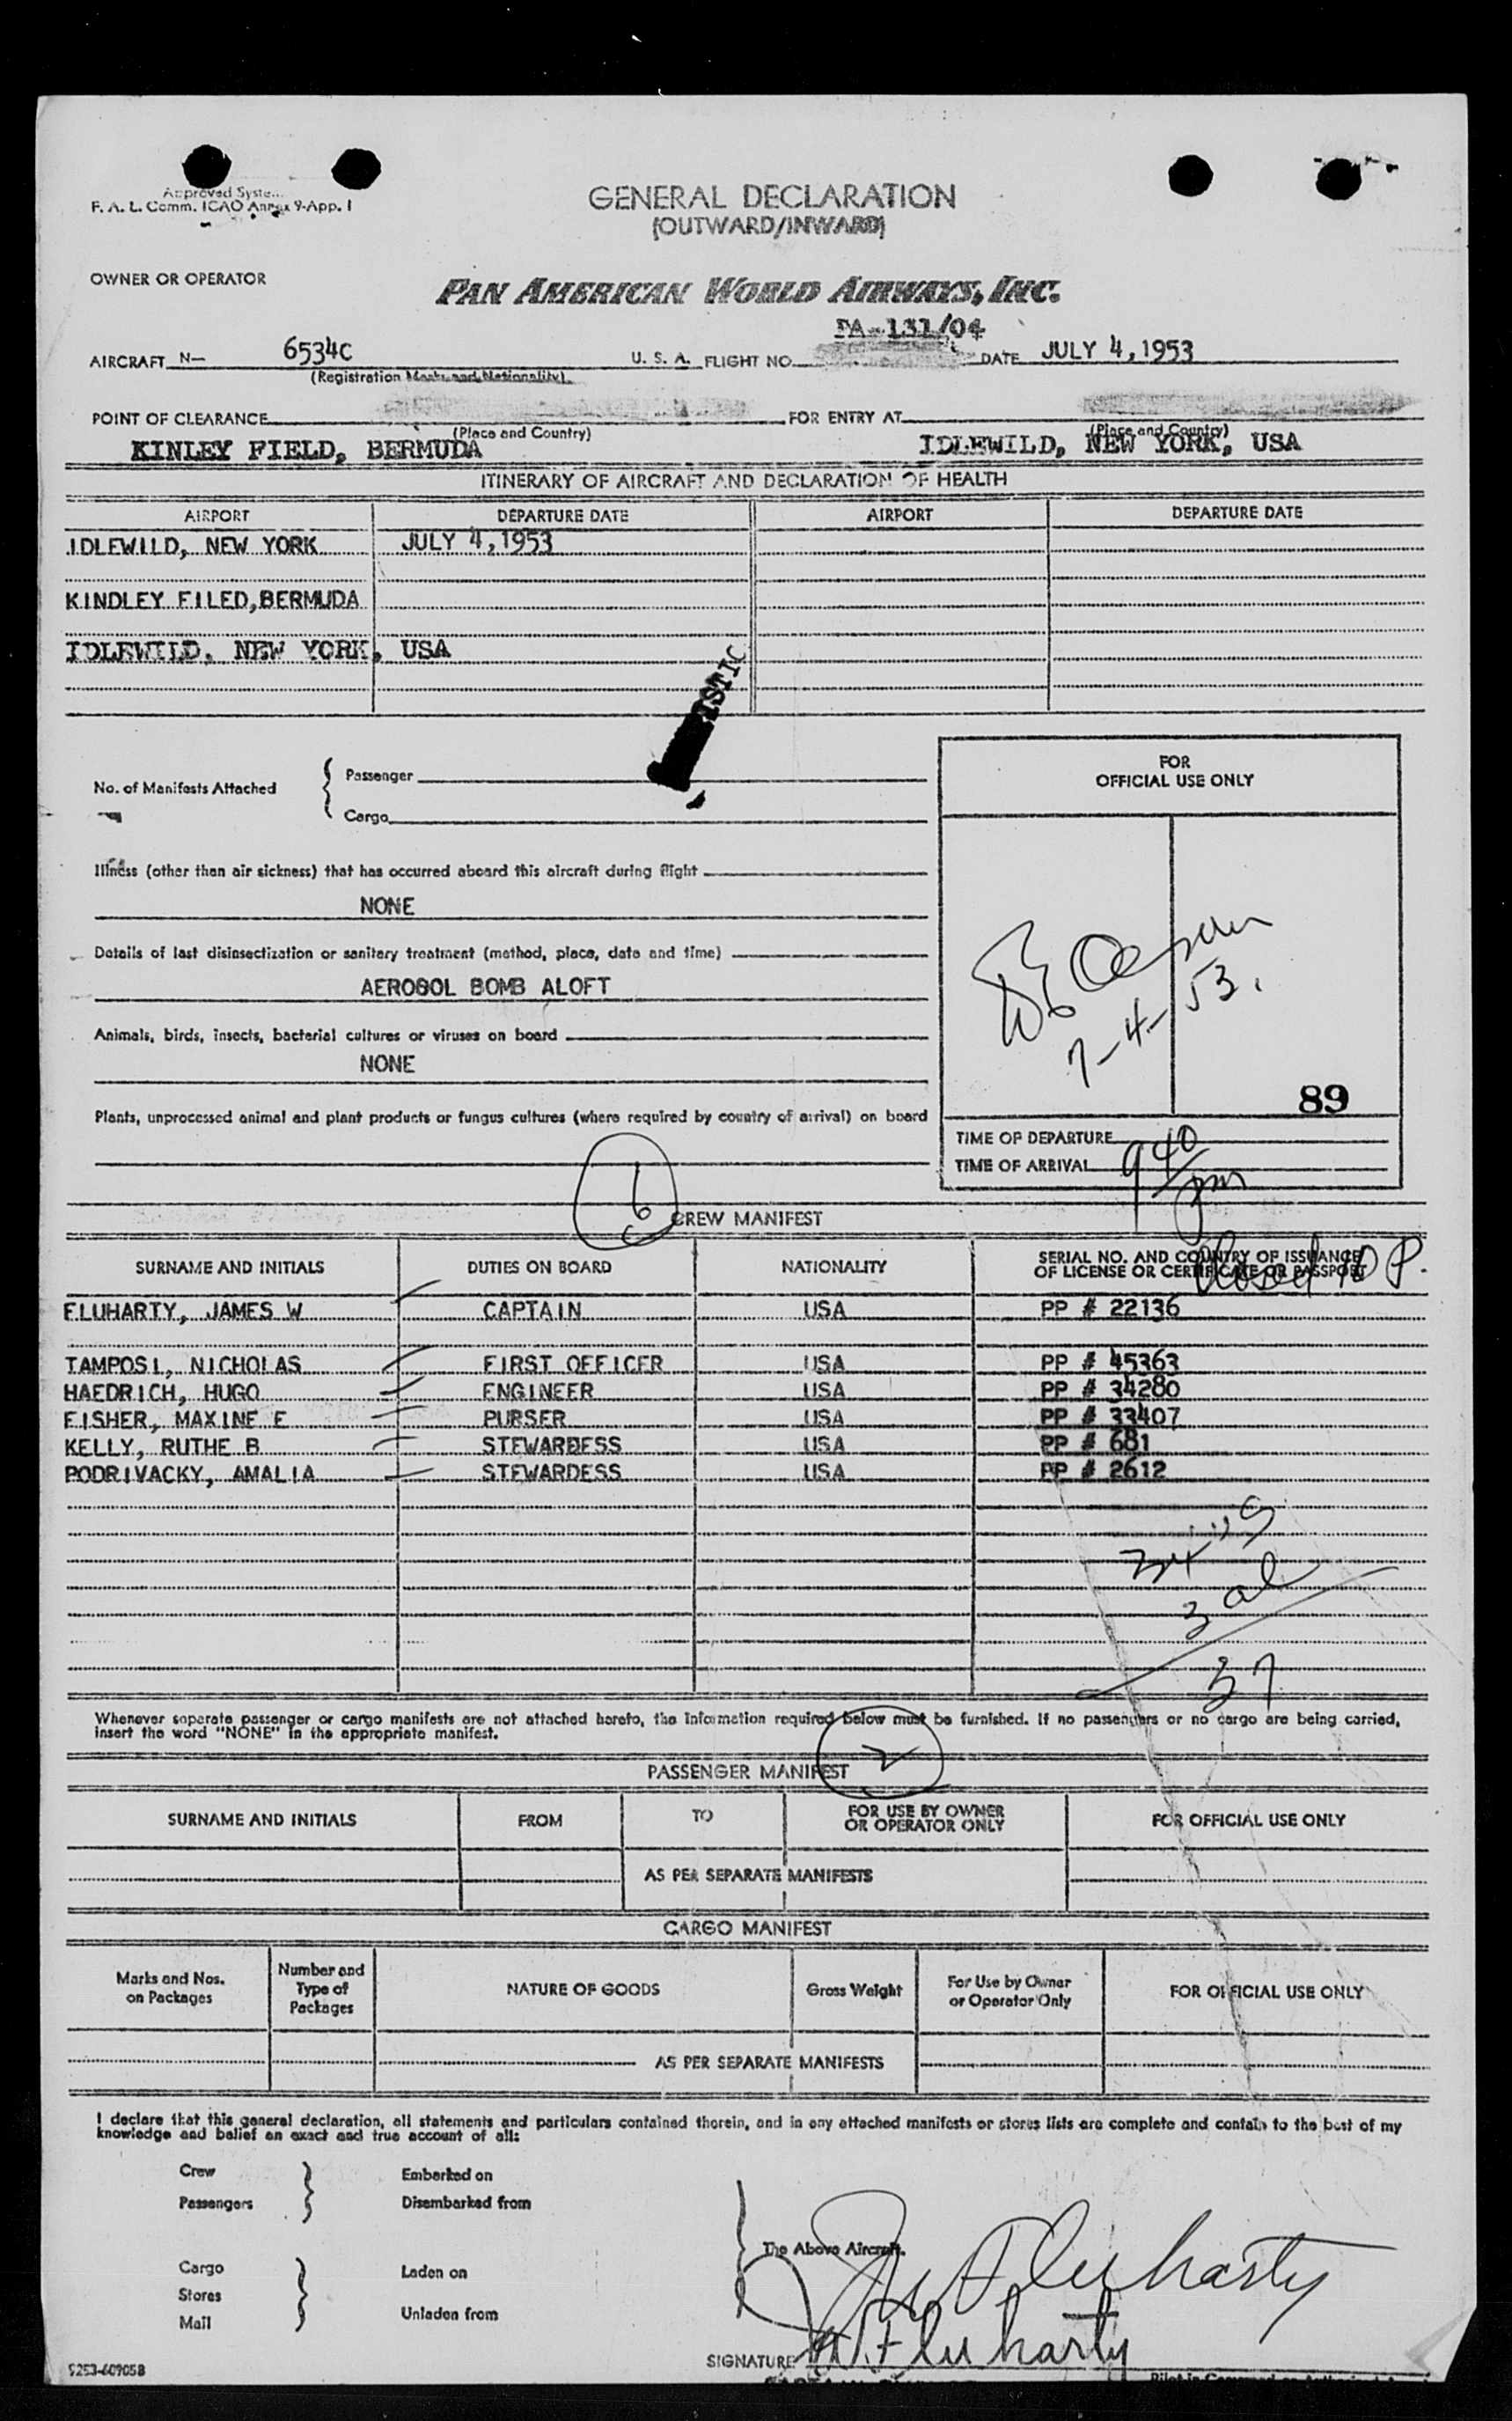 Approved Syste...
F. A. L. Comm. ICAO Annex 9-App. 1
GENERAL DECLARATION
(OUTWARD/INWARD)
OWNER OR OPERATOR
PAN AMERICAN WORLD AIRWAYS, INC.
PA-131/04
AIRCRAFT N- 6534C U. S. A. FLIGHT NO. DATE JULY 4, 1953
(Registration Marks and Nationality)
POINT OF CLEARANCE FOR ENTRY AT
(Place and Country) (Place and Country)
KINLEY FIELD, BERMUDA IDLEWILD, NEW YORK, USA
ITINERARY OF AIRCRAFT AND DECLARATION OF HEALTH
AIRPORT DEPARTURE DATE AIRPORT DEPARTURE DATE
IDLEWILD, NEW YORK JULY 4, 1953
KINDLEY FILED, BERMUDA
IDLEWILD, NEW YORK, USA
ISTIC
No. of Manifests Attached
Passenger
Cargo
FOR
OFFICIAL USE ONLY
Illness (other than air sickness) that has occurred aboard this aircraft during flight
NONE
Details of last disinsectization or sanitary treatment (method, place, date and time)
AEROSOL BOMB ALOFT
Animals, birds, insects, bacterial cultures or viruses on board
NONE
7-4-53.
89
Plants, unprocessed animal and plant products or fungus cultures (where required by country of arrival) on board
TIME OF DEPARTURE
TIME OF ARRIVAL 9 40/pm
6
CREW MANIFEST
Closed 10 P.
SURNAME AND INITIALS DUTIES ON BOARD NATIONALITY SERIAL NO. AND COUNTRY OF ISSUANCE
OF LICENSE OR CERTIFICATE OR PASSPORT
FLUHARTY, JAMES W CAPTAIN USA PP # 22136
TAMPOSI, NICHOLAS FIRST OFFICER USA PP # 45363
HAEDRICH, HUGO ENGINEER USA PP # 34280
FISHER, MAXINE E PURSER USA PP # 33407
KELLY, RUTHE B STEWARDESS USA PP # 681
PODRIVACKY, AMALIA STEWARDESS USA PP # 2612
34 us
3 al
37
Whenever separate passenger or cargo manifests are not attached hereto, the information required below must be furnished. If no passengers or no cargo are being carried,
insert the word "NONE" in the appropriate manifest.
2
PASSENGER MANIFEST
SURNAME AND INITIALS FROM TO FOR USE BY OWNER
OR OPERATOR ONLY FOR OFFICIAL USE ONLY
AS PER SEPARATE MANIFESTS
CARGO MANIFEST
Marks and Nos.
on Packages
Number and
Type of
Packages
NATURE OF GOODS
Gross Weight
For Use by Owner
or Operator Only
FOR OFFICIAL USE ONLY
AS PER SEPARATE MANIFESTS
I declare that this general declaration, all statements and particulars contained therein, and in any attached manifests or stores lists are complete and contain to the best of my
knowledge and belief an exact and true account of all:
Crew Embarked on
Passengers Disembarked from
The Above Aircraft.
Cargo Laden on
Stores
Mail Unladen from
JW Fluharty
SIGNATURE JW. Fluharty
9253-60905B